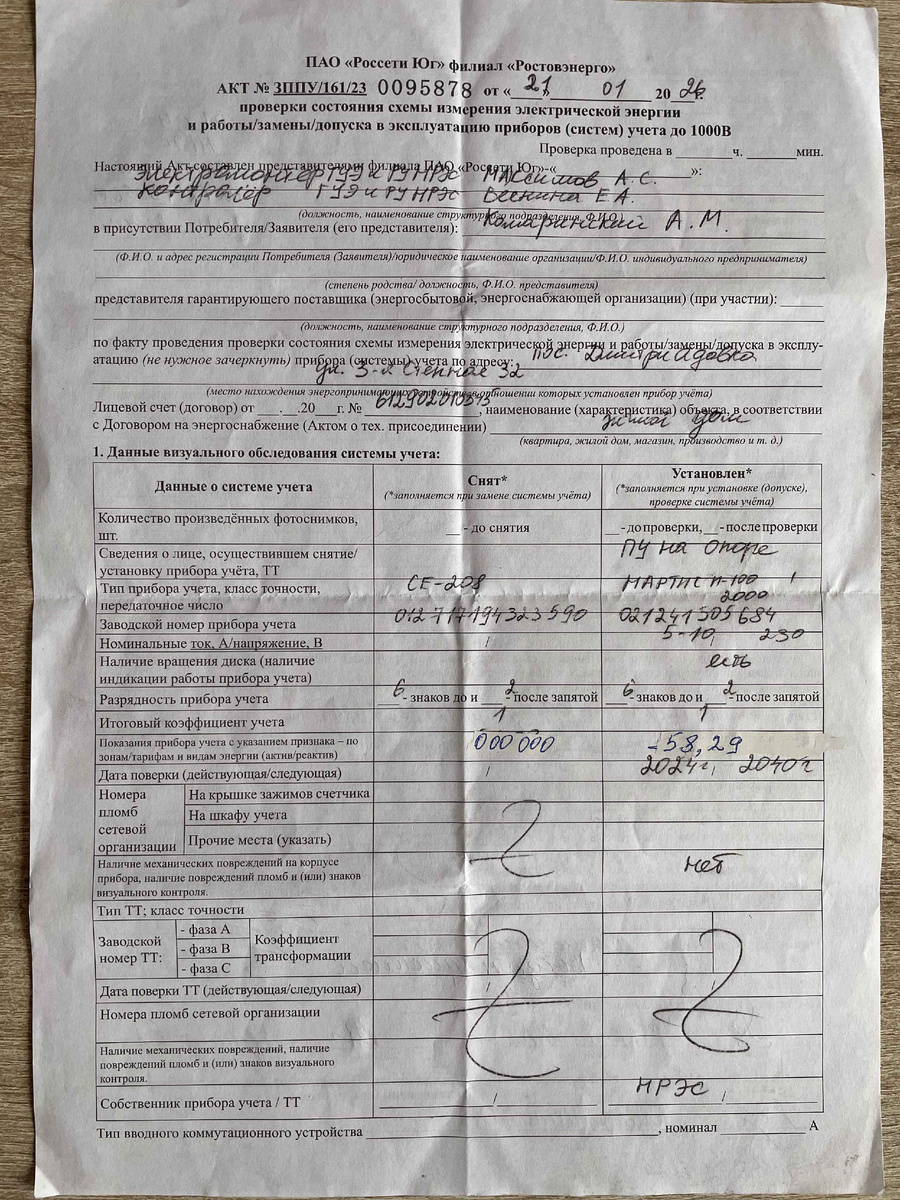 ПАО «Россети Юг» филиал «Ростовэнерго»
АКТ № ЗППУ/161/23 0095878 от « 21 » 01 20 26 г.
проверки состояния схемы измерения электрической энергии
и работы/замены/допуска в эксплуатацию приборов (систем) учета до 1000В
Проверка проведена в ______ ч. ______ мин.
Настоящий Акт составлен представителями филиала ПАО «Россети Юг»-« »:
Электромонтер ГУЭ и РУ НРЭС Массимов А.С.
Контролёр ГУЭ и РУ НРЭС Веснина Е.А.
(должность, наименование структурного подразделения, Ф.И.О.)
в присутствии Потребителя/Заявителя (его представителя): Комаринский А.М.
(Ф.И.О. и адрес регистрации Потребителя (Заявителя)/юридическое наименование организации/Ф.И.О. индивидуального предпринимателя)
(степень родства/ должность, Ф.И.О. представителя)
представителя гарантирующего поставщика (энергосбытовой, энергоснабжающей организации) (при участии): ______
(должность, наименование структурного подразделения, Ф.И.О.)
по факту проведения проверки состояния схемы измерения электрической энергии и работы/замены/допуска в эксплу-
атацию (не нужное зачеркнуть) прибора (системы) учета по адресу: пос. Дмитриадовка
ул. 3-я Степная 32
(место нахождения энергопринимающих устройств в отношении которых установлен прибор учёта)
Лицевой счет (договор) от ___.___.20___г. № 612902010573, наименование (характеристика) объекта, в соответствии
с Договором на энергоснабжение (Актом о тех. присоединении) жилой дом
(квартира, жилой дом, магазин, производство и т. д.)
1. Данные визуального обследования системы учета:
Данные о системе учета Снят* (*заполняется при замене системы учёта) Установлен* (*заполняется при установке (допуске), проверке системы учёта)
Количество произведённых фотоснимков, шт. __ - до снятия __ - до проверки, __ - после проверки
Сведения о лице, осуществившем снятие/ установку прибора учёта, ТТ ПУ на опоре
Тип прибора учета, класс точности, передаточное число СЕ-208 НАРТИС И-100 1 2000
Заводской номер прибора учета 012717194323590 021241305684
Номинальные ток, А/напряжение, В / 5-10, 230
Наличие вращения диска (наличие индикации работы прибора учета) есть
Разрядность прибора учета 6 - знаков до и 2 - после запятой 6 - знаков до и 2 - после запятой
Итоговый коэффициент учета 1 1
Показания прибора учета с указанием признака – по зонам/тарифам и видам энергии (актив/реактив) 000000 -58,29
Дата поверки (действующая/следующая) / 2024г, 2040г
Номера пломб сетевой организации
На крышке зажимов счетчика
На шкафу учета
Прочие места (указать)
Наличие механических повреждений на корпусе прибора, наличие повреждений пломб и (или) знаков визуального контроля. нет
Тип ТТ; класс точности
Заводской номер ТТ: - фаза А
- фаза В
- фаза С
Коэффициент трансформации
Дата поверки ТТ (действующая/следующая) / /
Номера пломб сетевой организации
Наличие механических повреждений, наличие повреждений пломб и (или) знаков визуального контроля.
Собственник прибора учета / ТТ / НРЭС /
Тип вводного коммутационного устройства ______, номинал ______ А